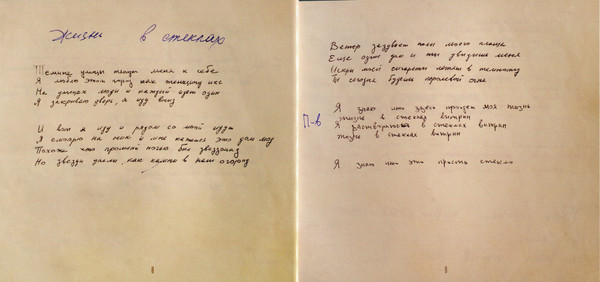 Жизнь в стеклах
Темные улицы тянут меня к себе
Я люблю этот город как женщину икс
На улицах люди и каждый идет один
Я закрываю дверь, я иду вниз
И вот я иду и рядом со мной идут
Я смотрю на них и мне кажется это дом мод
Похоже, что прошлой ночью был звездопад
Но звезды упали, как камни в наш огород
Ветер задувает полы моего плаща
Еще один дом и ты увидишь меня
Искры моей сигареты летят в темноту
Ты сегодня будешь королевой огня
Я знаю что здесь пройдет моя жизнь
П-в
жизнь в стеклах витрин
Я растворяюсь в стеклах витрин
жизнь в стеклах витрин
Я знаю что это просто стекло